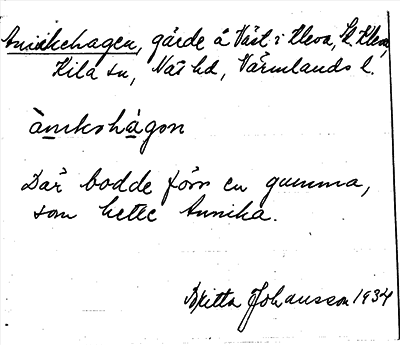 Annikehagen, gärde å Väst i Kleva, St. Kleva,
Kila sn, Näs hd, Värmlands l.
ànikahàgən
Där bodde förr en gumma,
som hette Annika.
Britta Johansson 1934